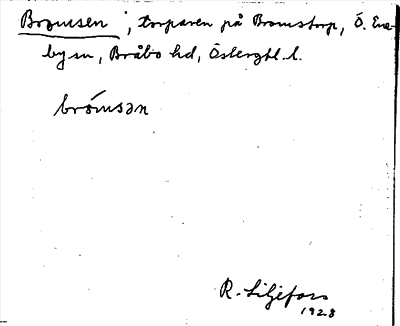 Bromsen ; torparen på Bromstorp, Ö. Ene-
by sn, Bråbo hd, Östergtl. l.
brómsən
R. Liljefors
1928